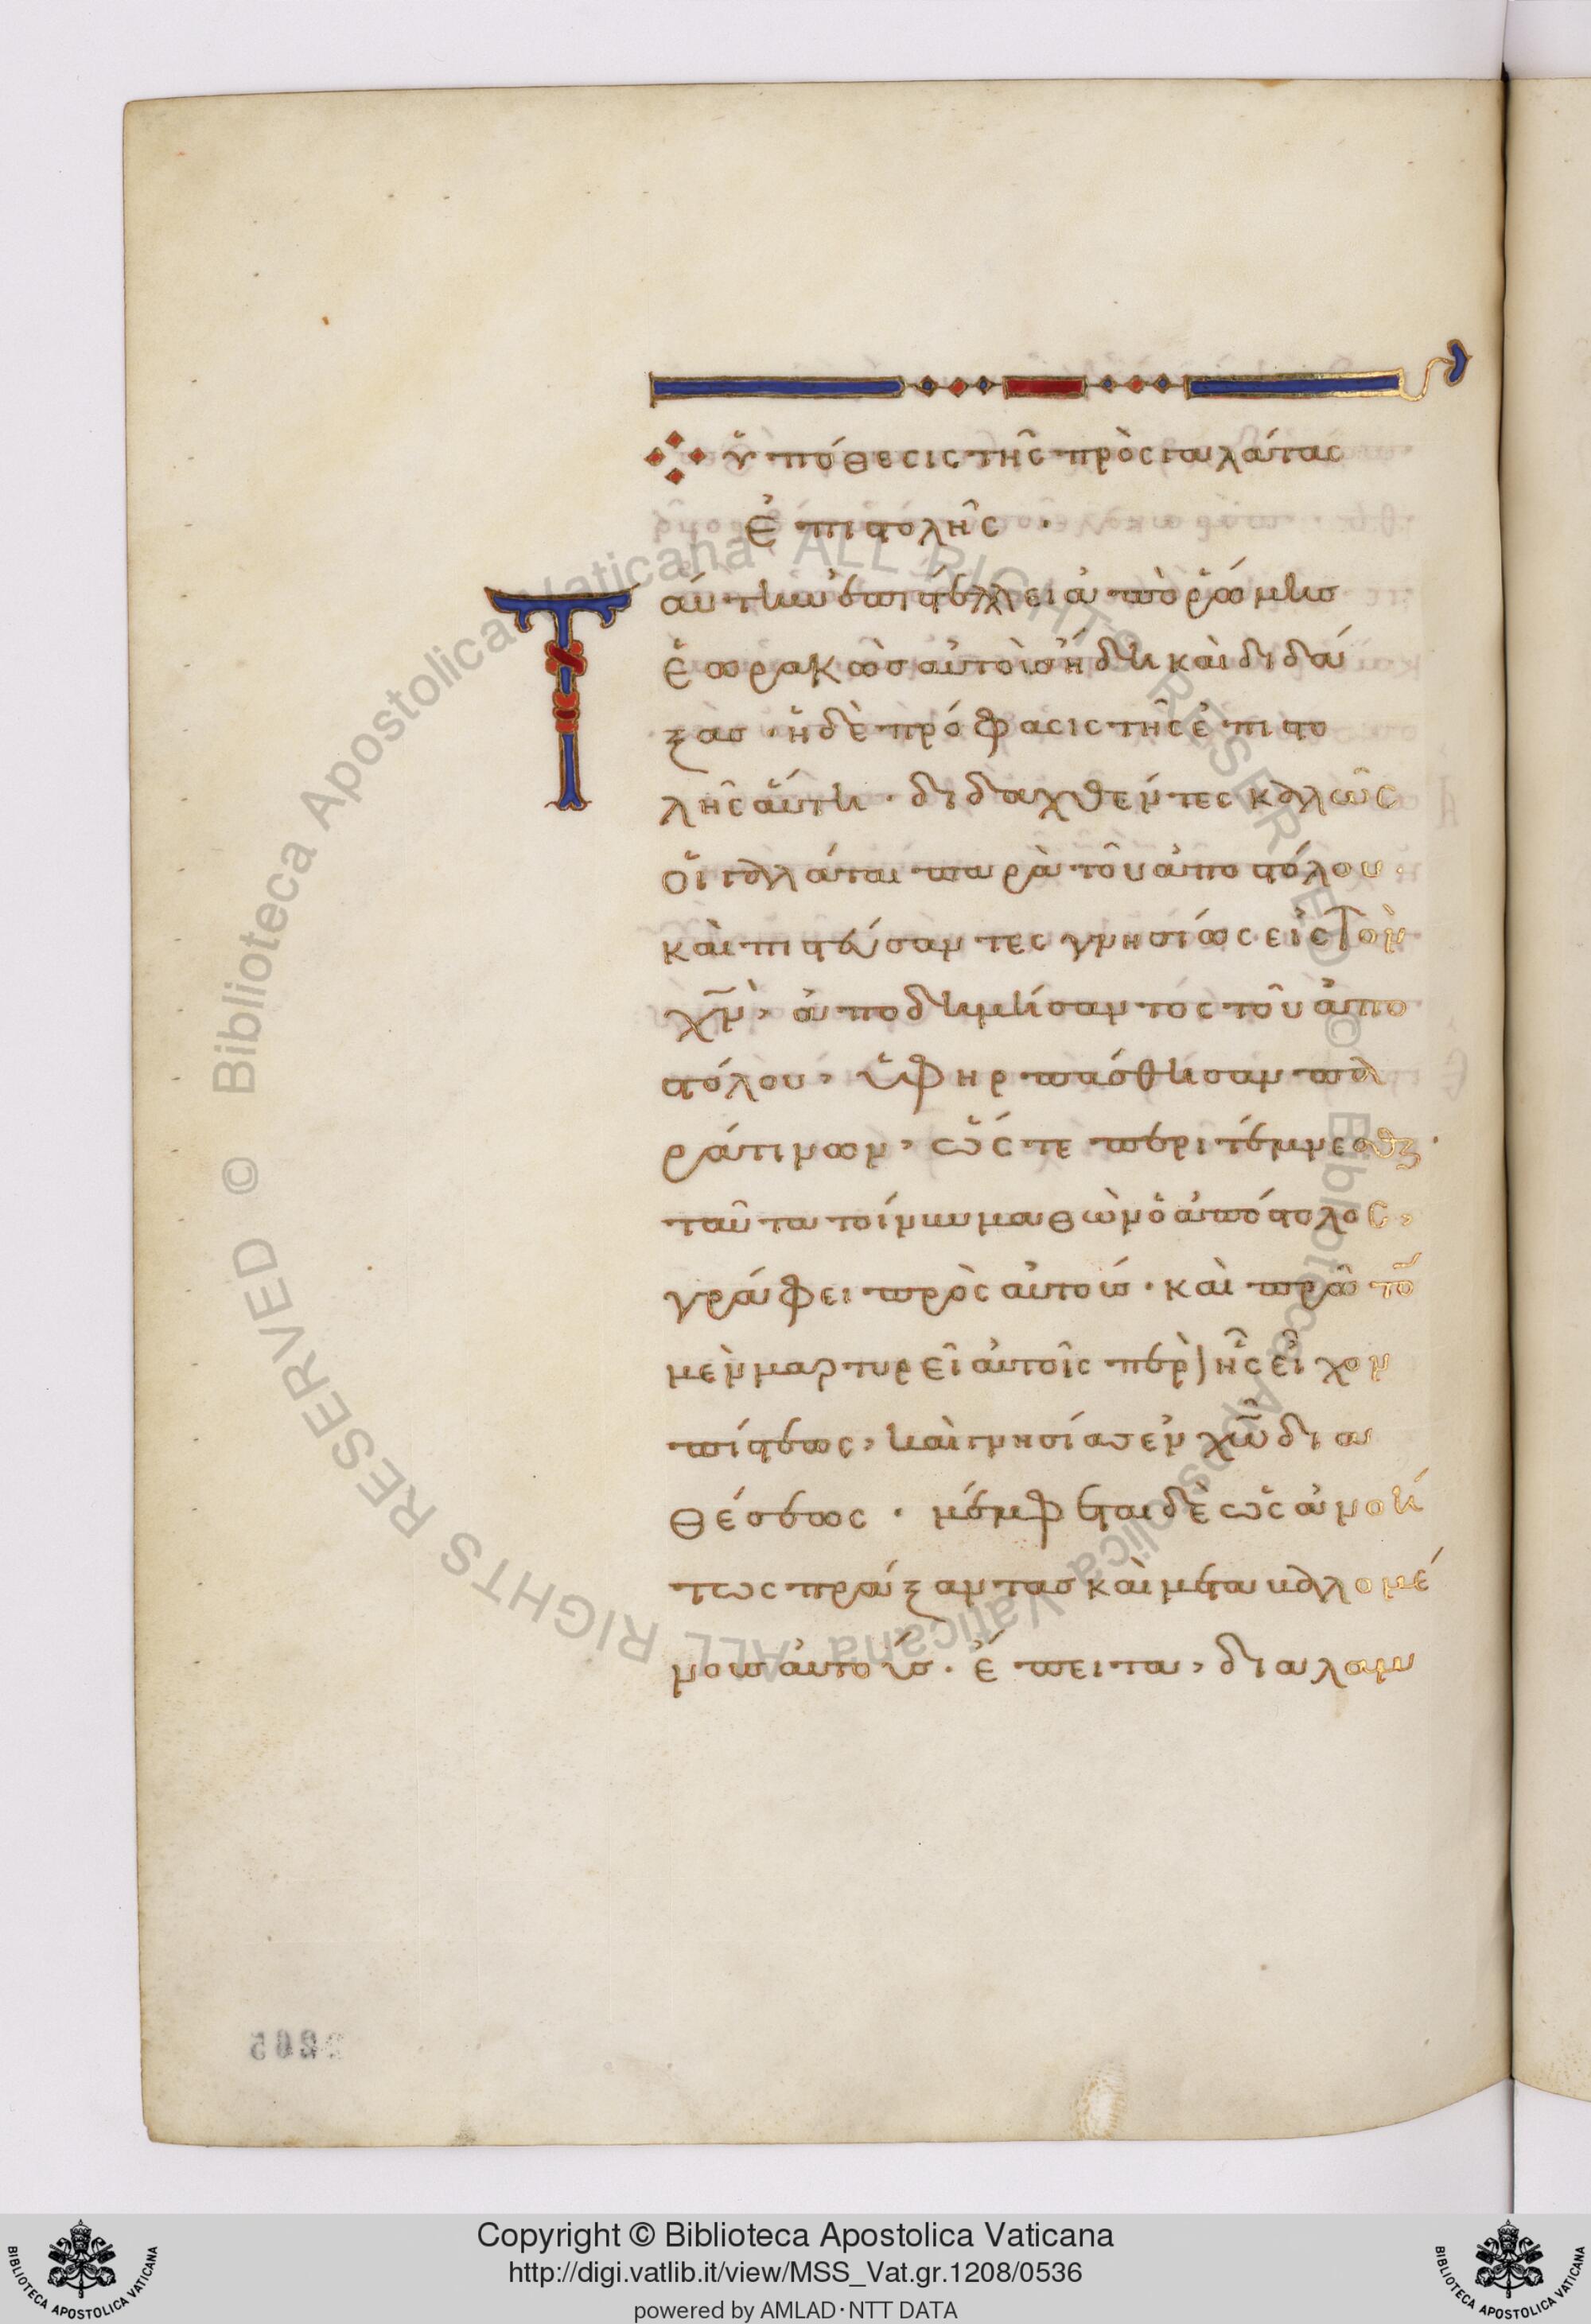 ὑπόθεσις τῆς πρὸς γαλάτας
ἐπιστολῆς ·
Ταύτην ἐπιστέλλει ἀπὸ ῥώμης
ἑωρακὼς αὐτοὺς ἤδη καὶ διδά
ξας · ἡ δὲ πρόφασις τῆς ἐπιστο
λῆς αὕτη · διδαχθέντες καλῶς
οἱ γαλάται παρὰ τοῦ ἀποστόλου ·
καὶ πιστεύσαντες γνησίως εἰς τὸν
χ̅ν̅, ἀποδημήσαντος τοῦ ἀπο
στόλου, ὑφηρπάσθησαν πα
ρά τινων, ὥστε περιτέμνεσθαι ·
ταῦτα τοίνυν μαθὼν ὁ ἀπόστολος,
γράφει πρὸς αὐτούς · καὶ πρῶτο̅
μὲν μαρτυρεῖ αὐτοῖς περὶ ἧς εἶχον
πίστεως, καὶ γνησίας ἐν χ̅ω̅ δια
θέσεως · μέμφεται δὲ ὡς ἀνοή
τως πράξαντας καὶ μεταβαλλομέ
νους αὐτούς · ἔπειτα, διαλαμ
2265
Copyright © Biblioteca Apostolica Vaticana
http://digi.vatlib.it/view/MSS_Vat.gr.1208/0536
powered by AMLAD · NTT DATA
BIBLIOTECA APOSTOLICA VATICANA
BIBLIOTECA APOSTOLICA VATICANA
© Biblioteca Apostolica Vaticana ALL RIGHTS RESERVED © Biblioteca Apostolica Vaticana ALL RIGHTS RESERVED